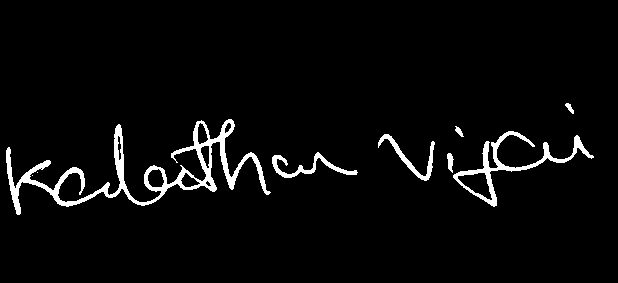 Kadeathan Vijai